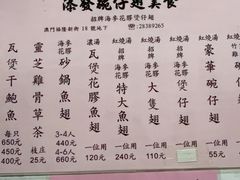 添發碗仔翅美食
招牌海參花膠煲仔翅
澳門福隆新街18號地下 ☎:28389265
瓦煲干鮑魚
每只
650元
450元
400元
靈芝雞骨草茶
枝庄
25元
海參花膠
砂鍋魚翅
3-4人
440元
660元
濃湯
瓦煲花膠魚翅
一位用
120元
紅燒湯
特大魚翅
一位用
240元
紅燒湯
大隻翅
一位用
110元
紅燒湯
煲仔翅
紅燒湯
豪華碗仔翅
一位用
55元
紅燒
碗仔